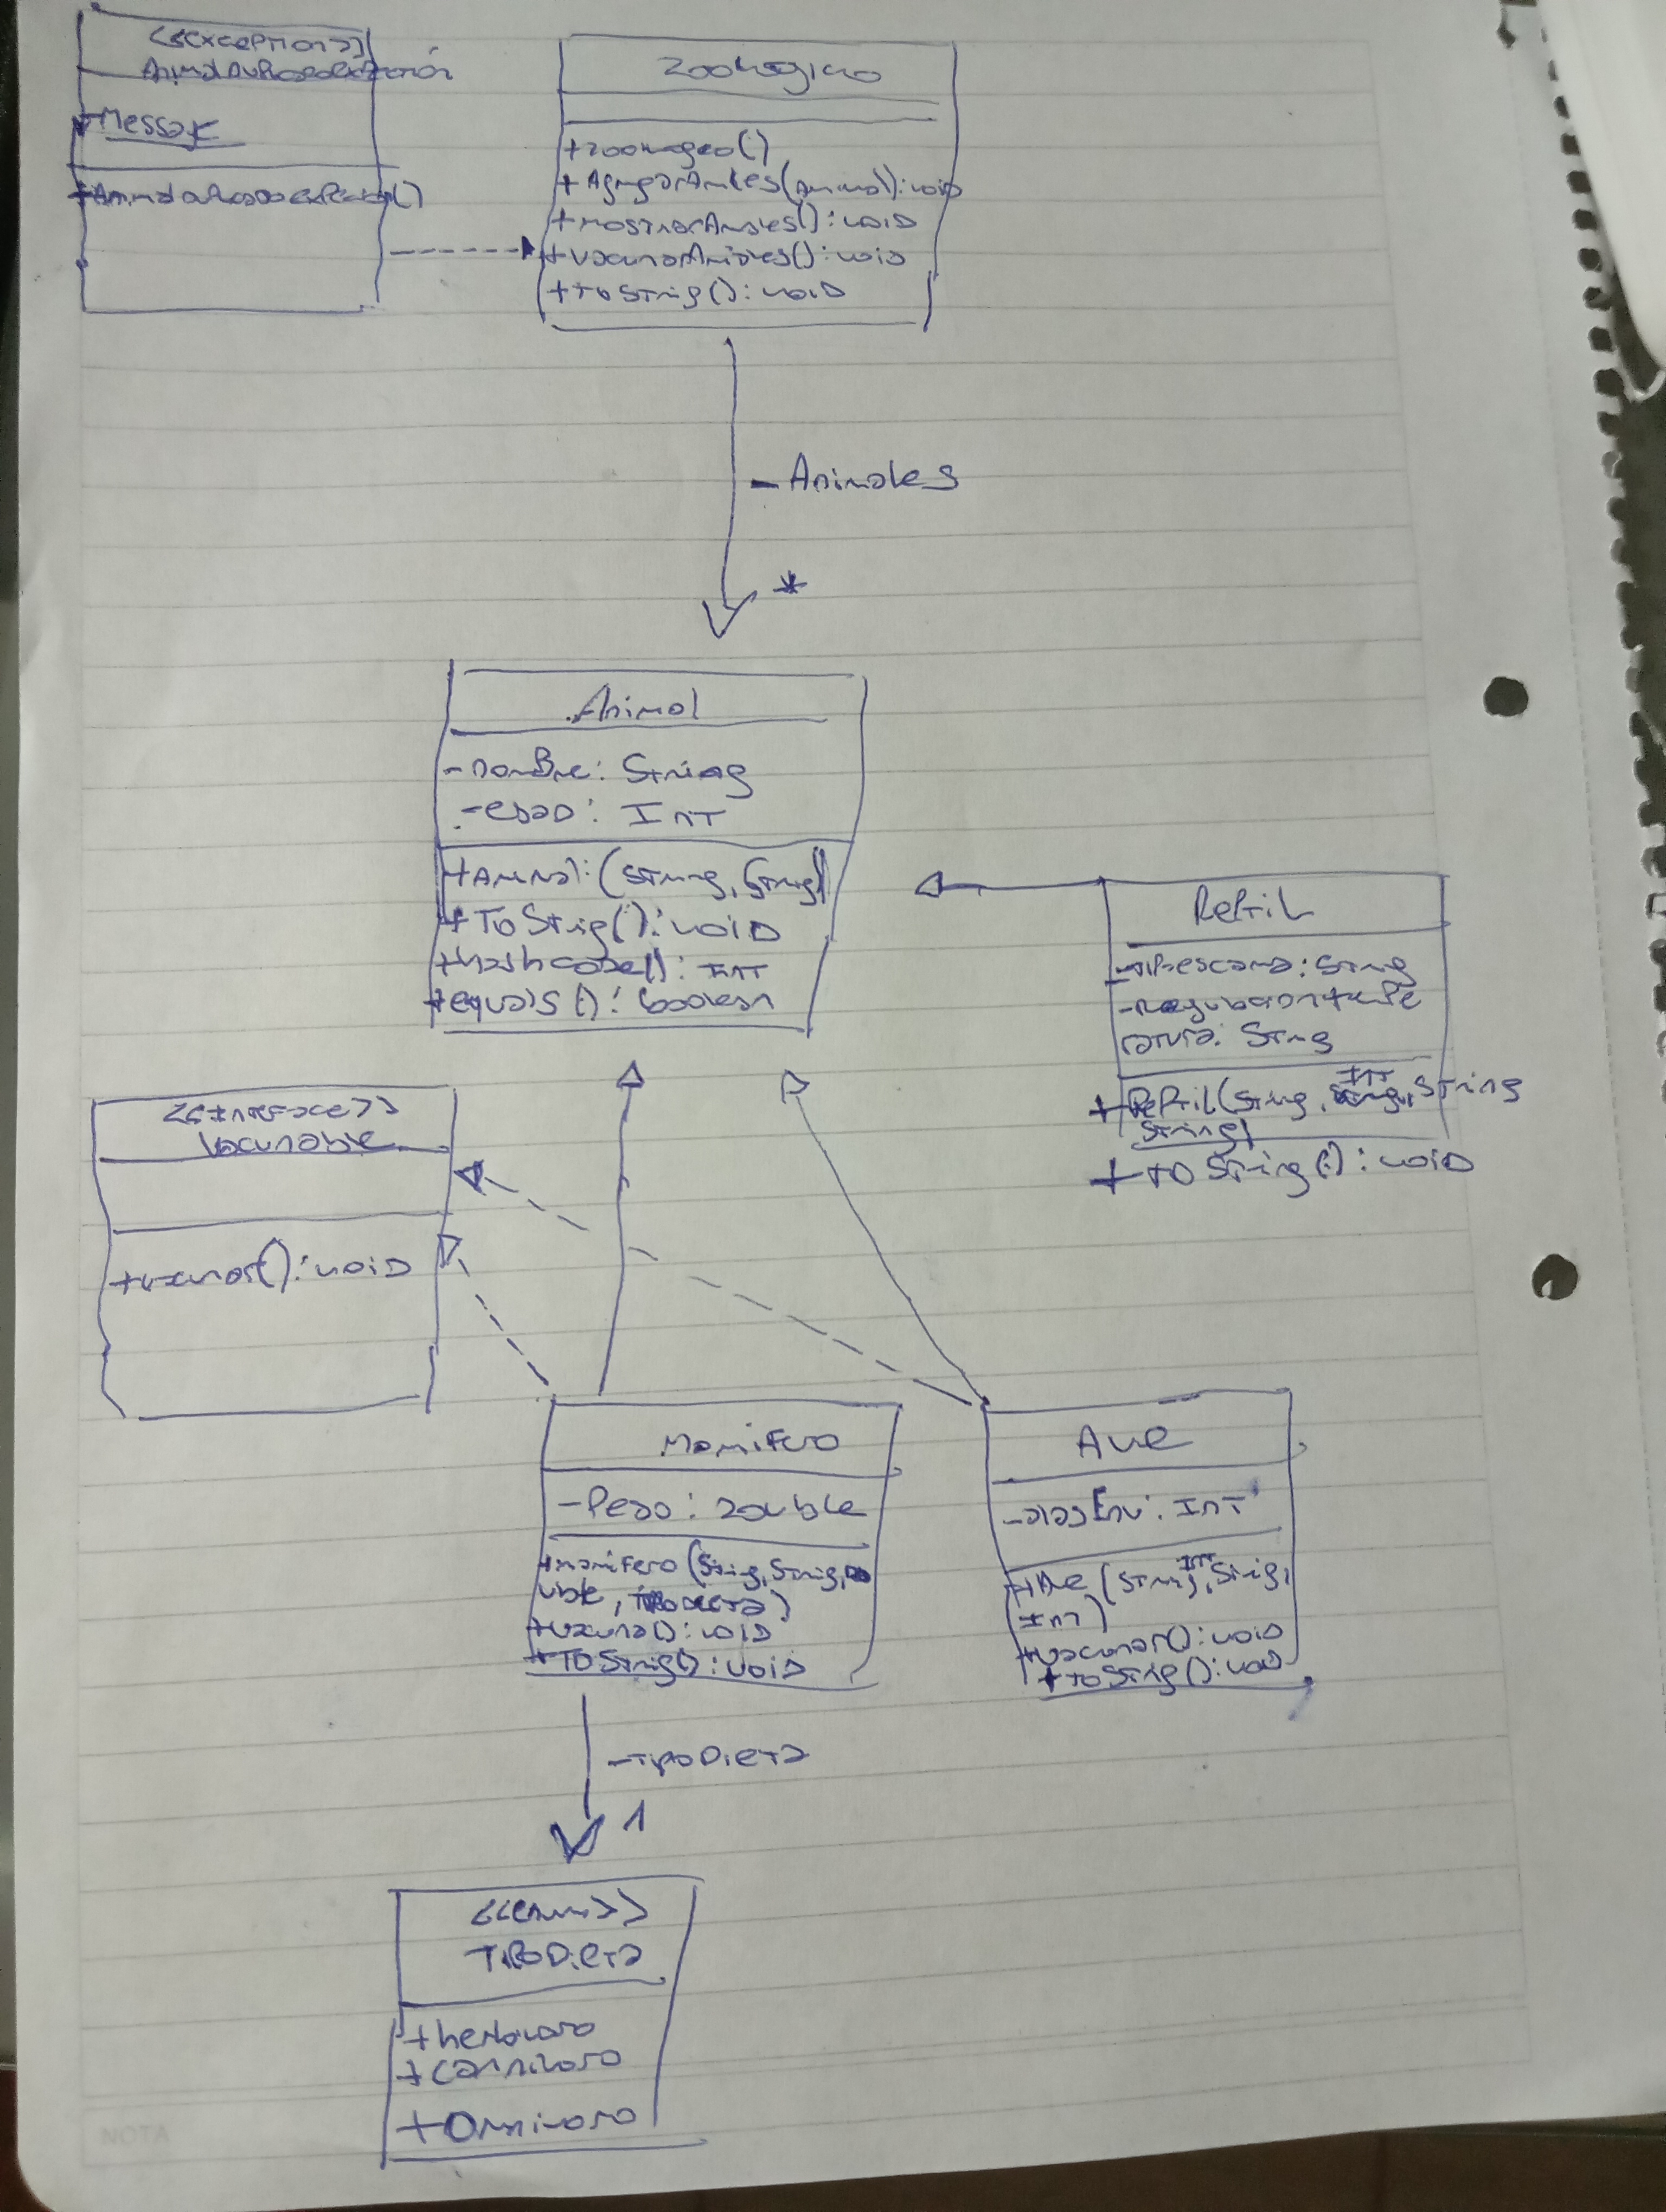 <<exception>>
+Message
Zoologico
+zoologico()
+Agregar(Animal):void
+mostrar():void
+vacunar():void
+ToString():void
-Animales
*
Animal
-nomBre: String
-edad: Int
+Animal:(String, String)
+ToString():void
+hashcode(): Int
+equals(): boolean
Reptil
-escama: String
-regulaciontempe
ratura: String
+Reptil(String, Int, String
String)
+toString(): void
<<interface>>
Vacunable
+vacunar():void
Mamifero
-Peso: Double
+mamifero(String, String, Do
uble, TipoDieta)
+vacuna():void
+ToString():void
Ave
-alasEnv: Int
+Ave(String, Int, String,
Int)
+vacunar():void
+toString():void
-tipoDieta
1
<<enum>>
TipoDieta
+herbivoro
+carnivoro
+Omnivoro
NOTA